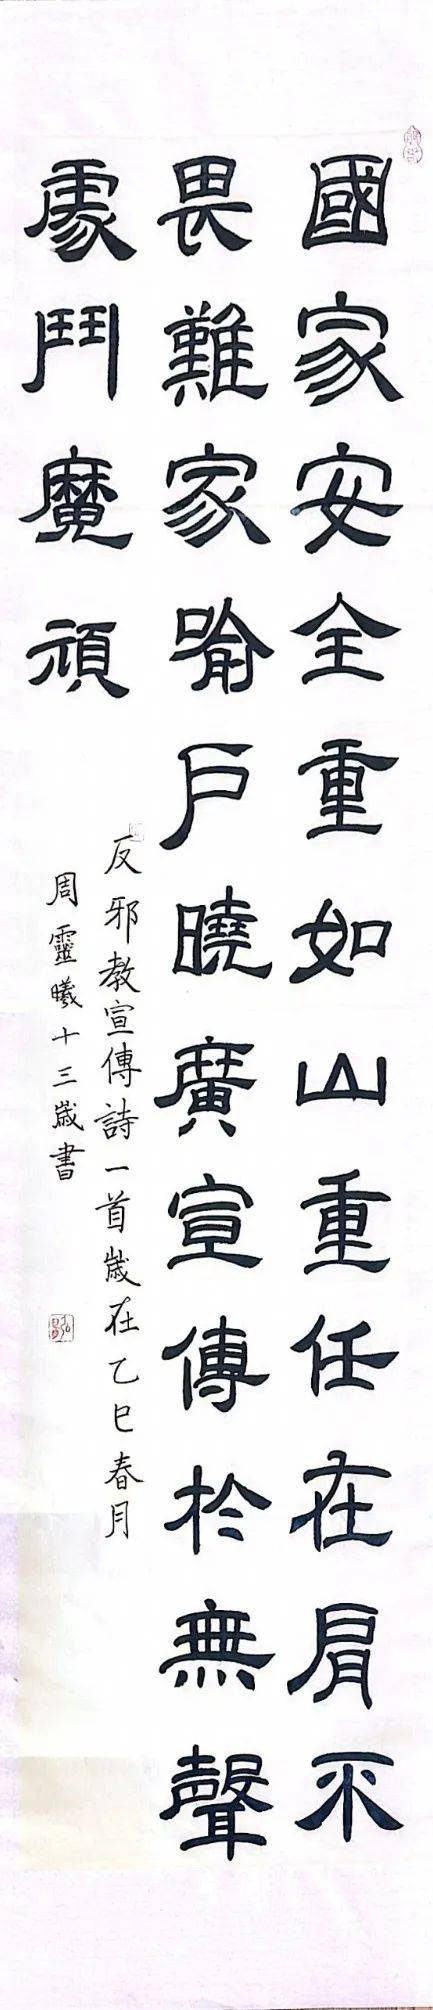 國家安全重如山重任在肩不
畏難家喻戶曉廣宣傳於無聲
處鬥魔頑
反邪教宣傳詩一首歲在乙巳春月
周靈曦十三歲書